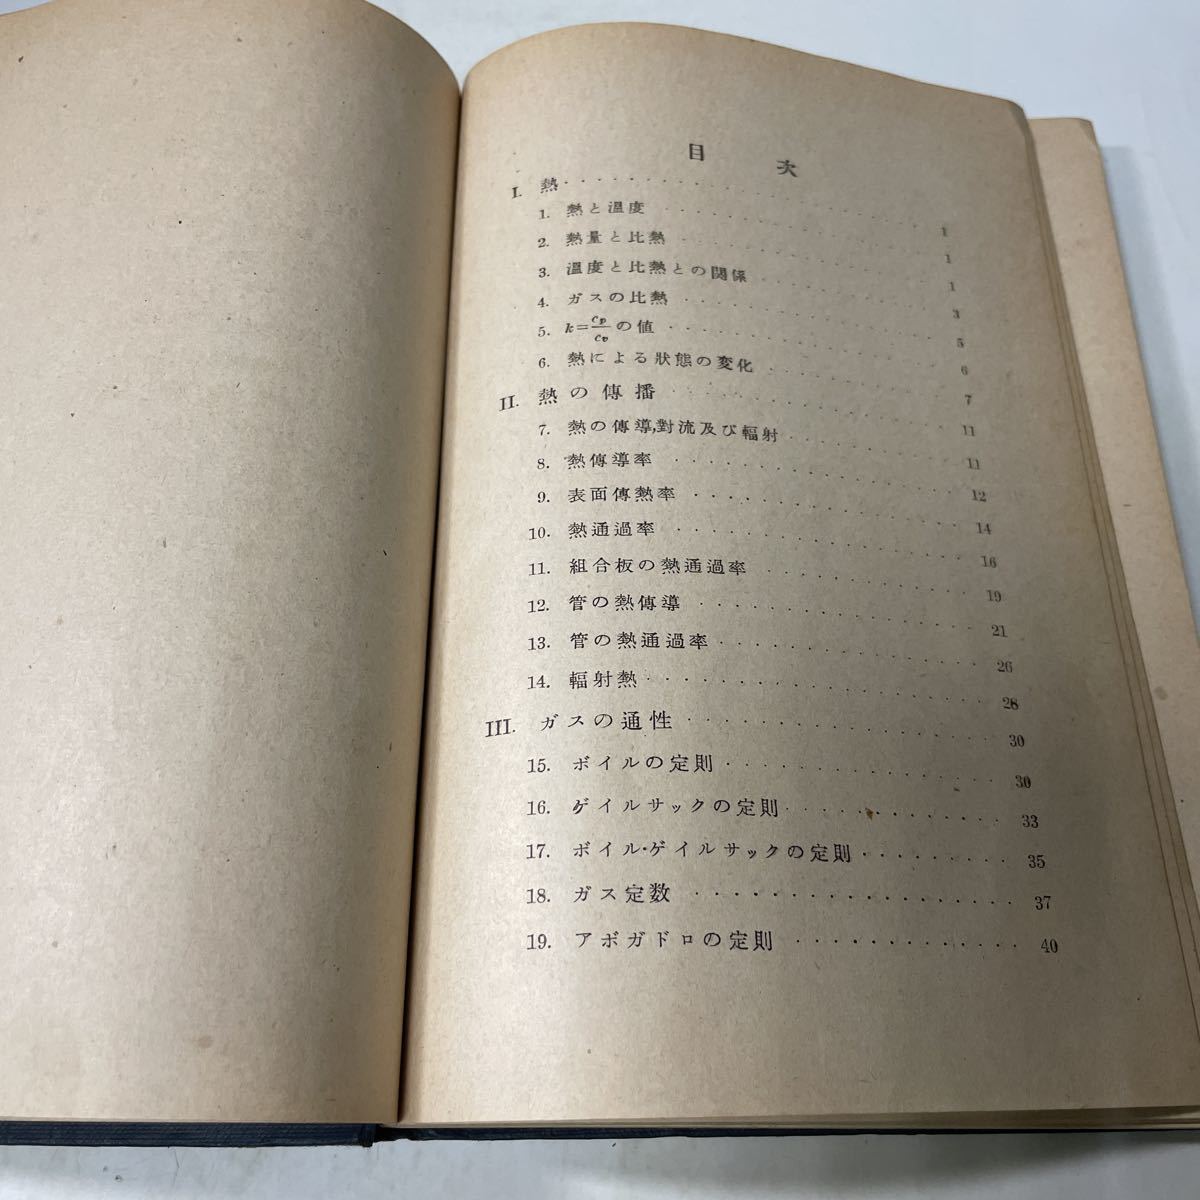 目次
I. 熱 1
1. 熱と溫度 1
2. 熱量と比熱 1
3. 溫度と比熱との関係 3
4. ガスの比熱 5
5. k=cp/cvの値 6
6. 熱による狀態の変化 7
II. 熱の傳播 11
7. 熱の傳導,對流及び輻射 11
8. 熱傳導率 12
9. 表面傳熱率 14
10. 熱通過率 16
11. 組合板の熱通過率 19
12. 管の熱傳導 21
13. 管の熱通過率 26
14. 輻射熱 28
III. ガスの通性 30
15. ボイルの定則 30
16. ゲイルサックの定則 33
17. ボイル・ゲイルサックの定則 35
18. ガス定数 37
19. アボガドロの定則 40